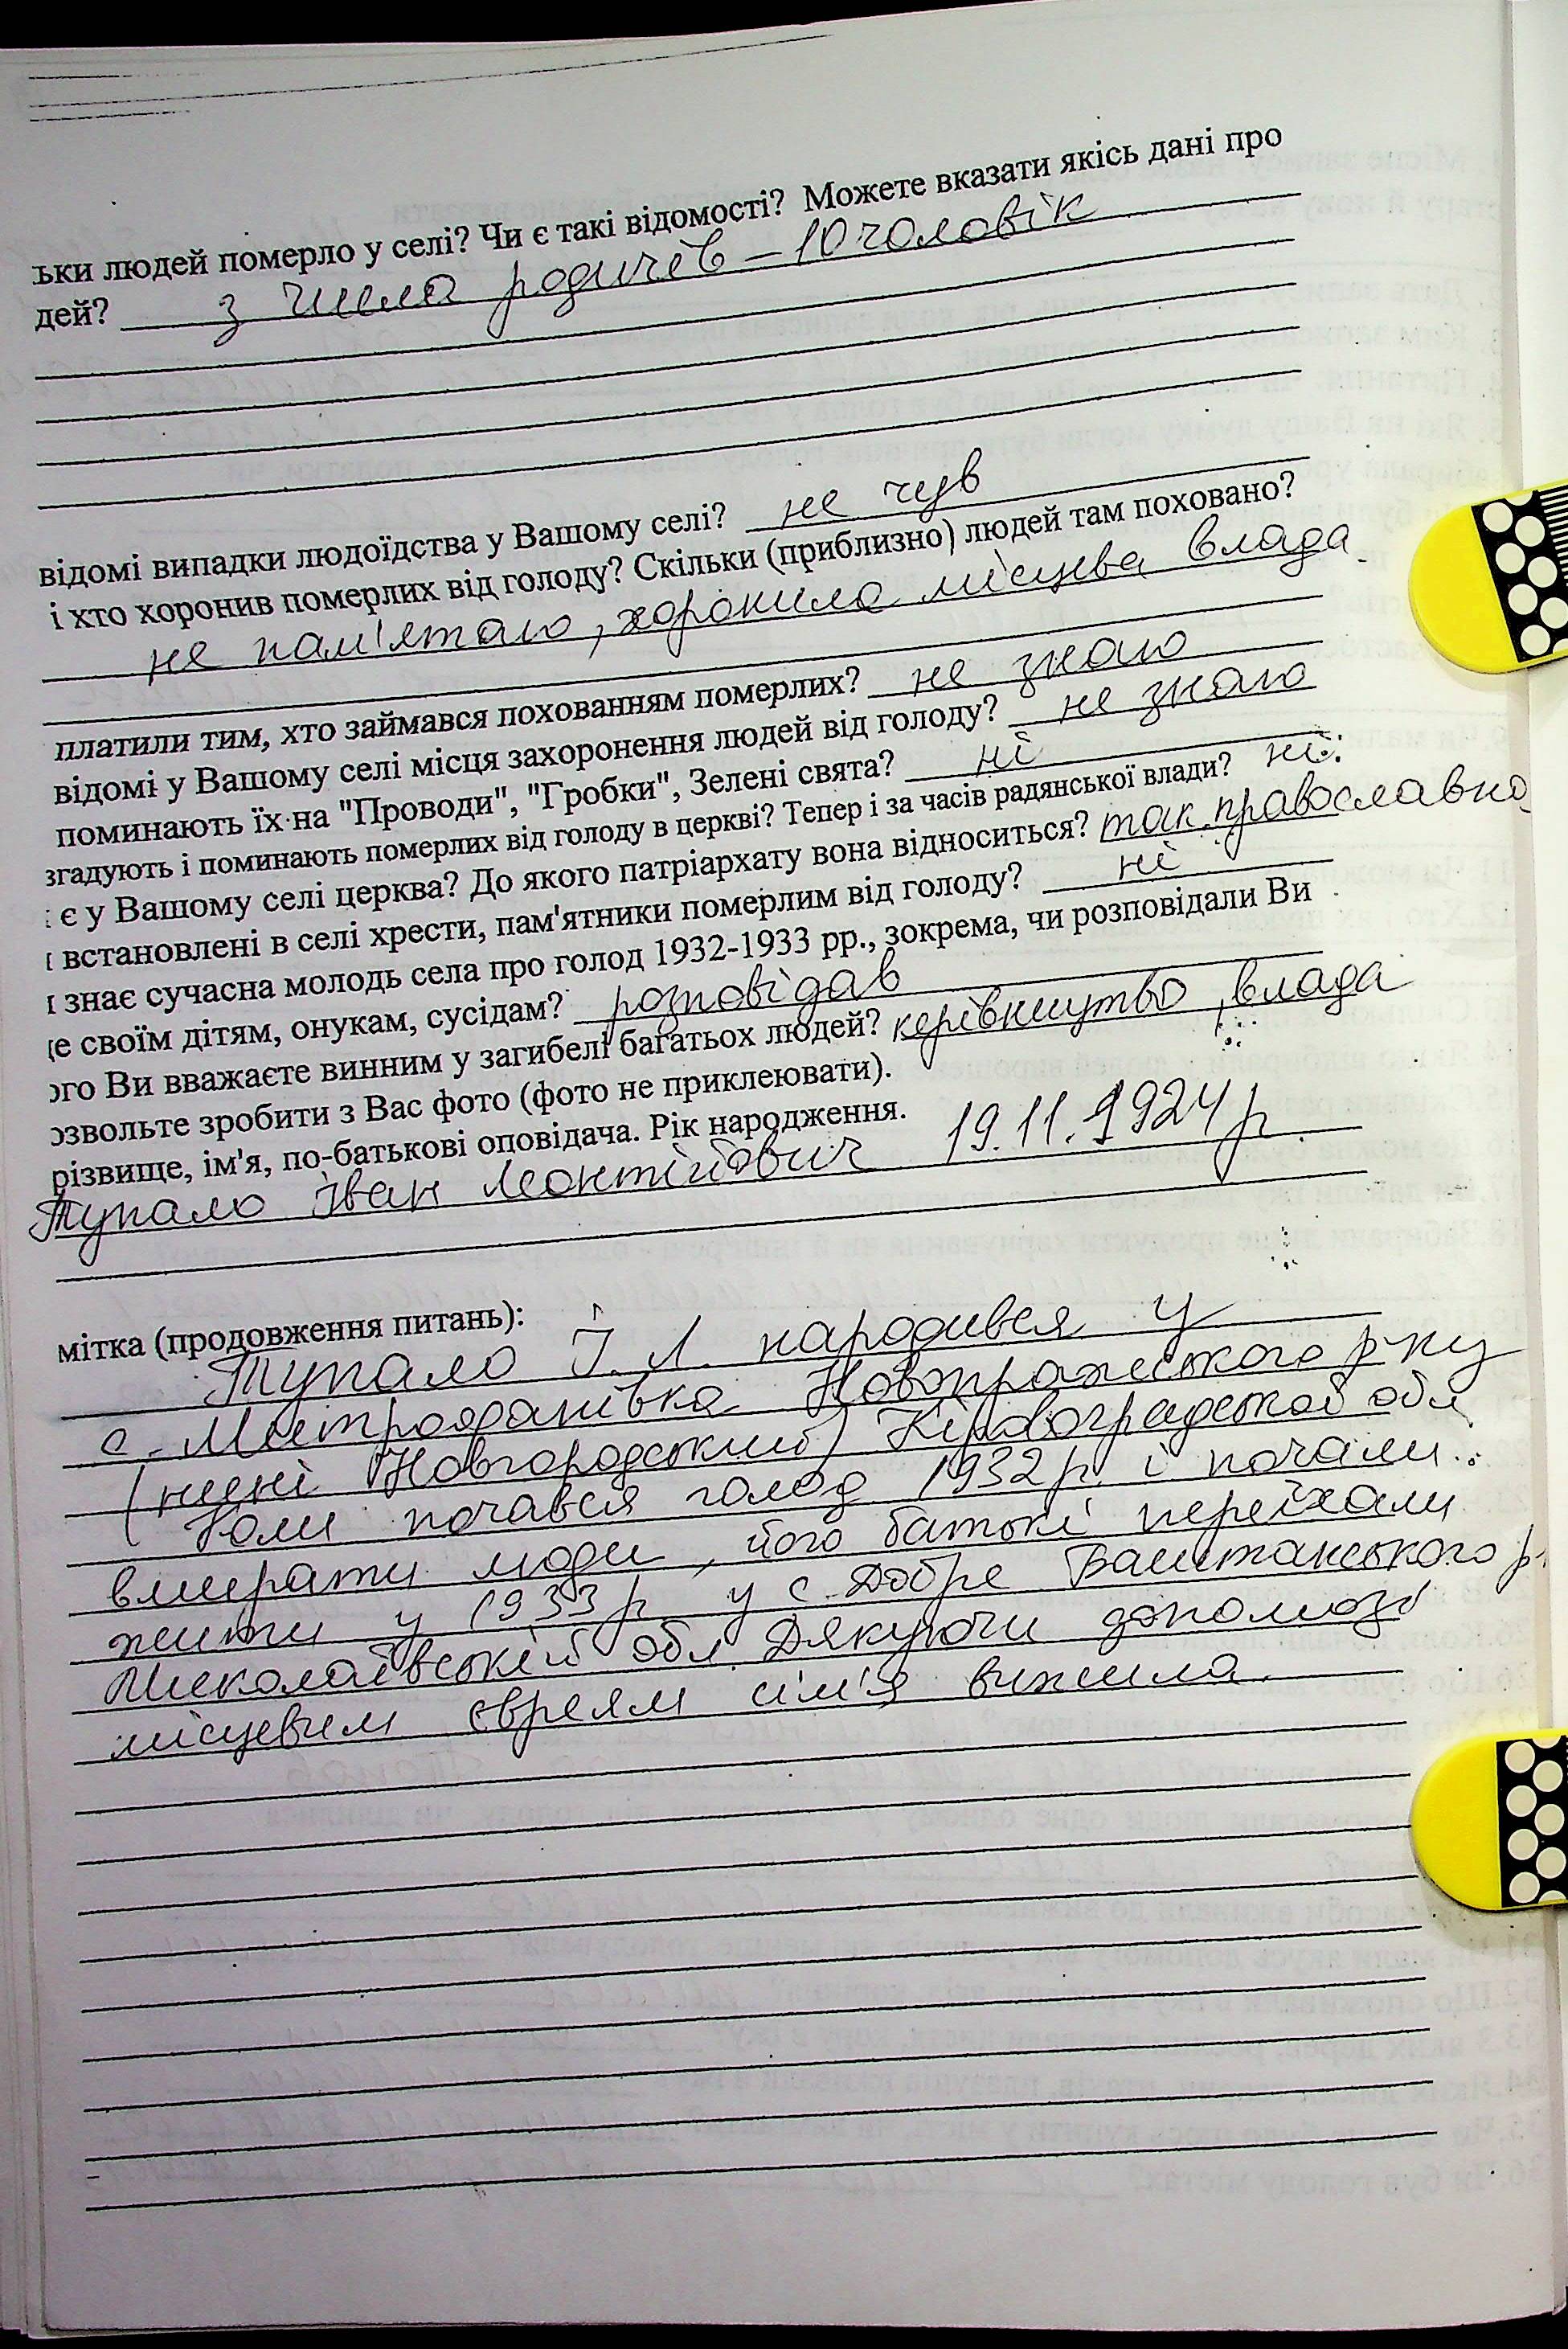 ьки людей померло у селі? Чи є такі відомості? Можете вказати якісь дані про
дей? з числа родичів – 10 чоловік
відомі випадки людоїдства у Вашому селі? не чув
і хто хоронив померлих від голоду? Скільки (приблизно) людей там поховано?
не пам'ятаю, хоронила місцева влада
платили тим, хто займався похованням померлих? не знаю
відомі у Вашому селі місця захоронення людей від голоду? не знаю
поминають їх на "Проводи", "Гробки", Зелені свята? ні
згадують і поминають померлих від голоду в церкві? Тепер і за часів радянської влади? ні.
є у Вашому селі церква? До якого патріархату вона відноситься? так, православна
встановлені в селі хрести, пам'ятники померлим від голоду? ні
знає сучасна молодь села про голод 1932-1933 рр., зокрема, чи розповідали Ви
е своїм дітям, онукам, сусідам? розповідав
ого Ви вважаєте винним у загибелі багатьох людей? керівництво, влада
озвольте зробити з Вас фото (фото не приклеювати).
різвище, ім'я, по-батькові оповідача. Рік народження.
Тупало Іван Леонтійович 19.11.1924 р.
мітка (продовження питань):
Тупало І. Л. народився у
с. Митрофанівка Новопразького р-ну
(нині Новгородський) Кіровоградської обл
Коли почався голод 1932 р. і почали
вмирати люди, його батькі переїхали
жити у 1933 р у с. Добре Баштанського р-
Миколаївській обл. Дякуючи допомозі
місцевим євреям сім'я вижила.